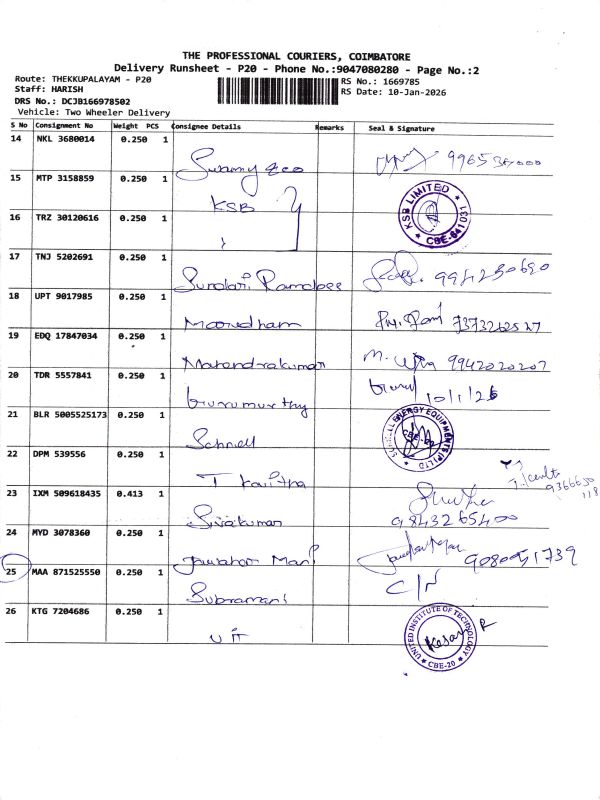 THE PROFESSIONAL COURIERS, COIMBATORE
Delivery Runsheet - P20 - Phone No.:9047080280 - Page No.:2
Route: THEKKUPALAYAM - P20
RS No.: 1669785
Staff: HARISH
RS Date: 10-Jan-2026
DRS No.: DCJB166978502
Vehicle: Two Wheeler Delivery
S No Consignment No Weight PCS Consignee Details Remarks Seal & Signature
14 NKL 3680014 0.250 1
15 MTP 3158859 0.250 1
KSB
KSB LIMITED CBE-641031
16 TRZ 30120616 0.250 1
17 TNJ 5202691 0.250 1
Sundari
18 UPT 9017985 0.250 1
19 EDQ 17847034 0.250 1
Mahendrakumar
9942020207
20 TDR 5557841 0.250 1
Gurumurthy
10/1/26
21 BLR 5005525173 0.250 1
Schnell
SCHNELL ENERGY EQUIPMENTS (P) LTD CBE-20
22 DPM 539556 0.250 1
T Kavitha
23 IXM 509618435 0.413 1
Sivakumar
9843265400
24 MYD 3078360 0.250 1
Jawahar Mani
9080051739
25 MAA 871525550 0.250 1
Subramani
C/N
26 KTG 7204686 0.250 1
UIT
UNITED INSTITUTE OF TECHNOLOGY CBE-20